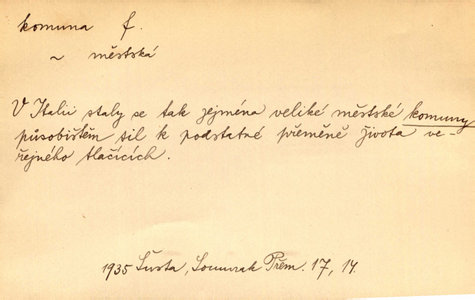 komuna f.
~ městská
V Italii staly se tak zejména veliké městské komuny
působištěm sil k podstatné přeměně života ve-
řejného tlačících.
1935 Šusta, Soumrak Přem. 17, 14.